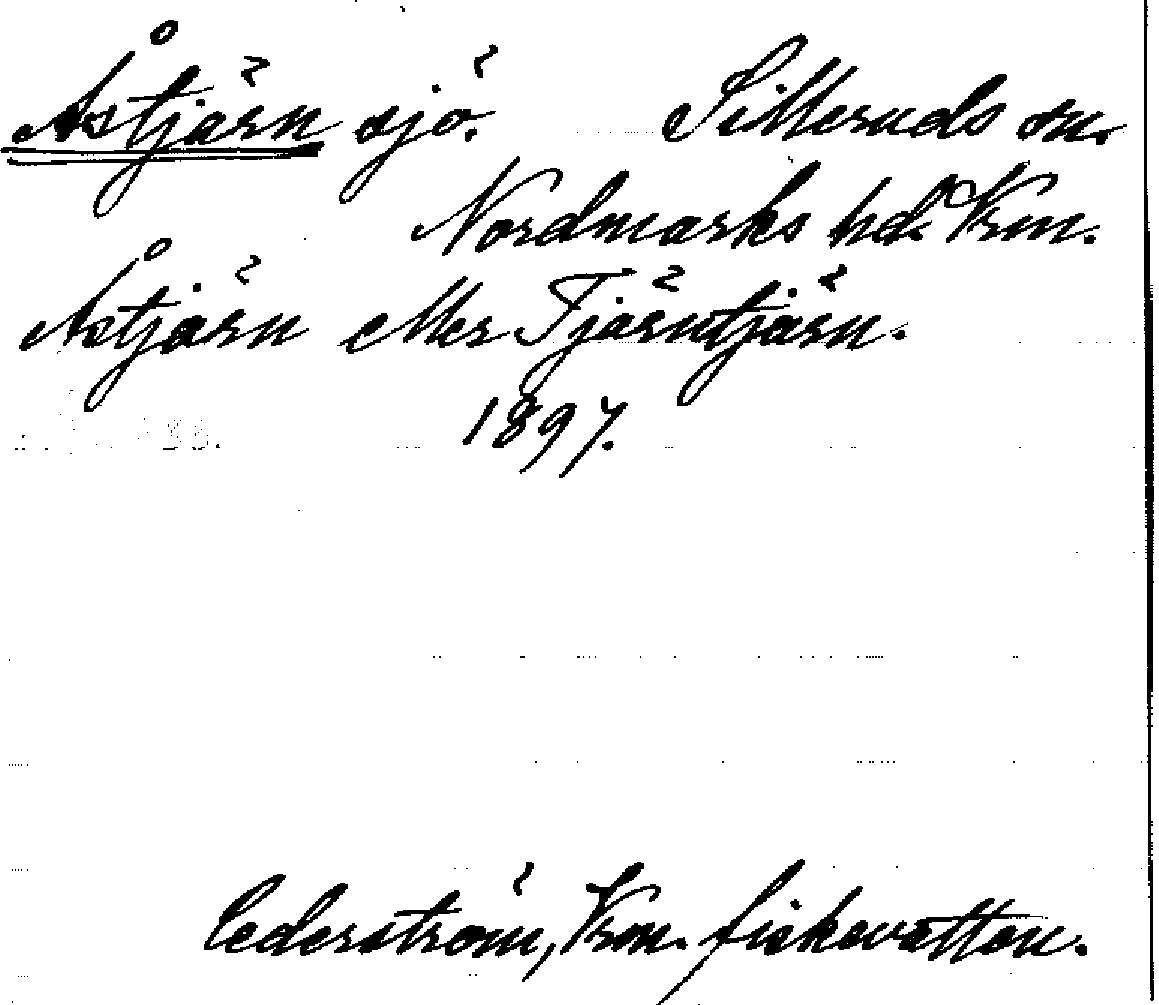 Åstjärn sjö. Silleruds sn.
Nordmarks hd. Vrm.
Åstjärn eller Tjärntjärn.
1897.
Cederström, Vrm. fiskevatten.